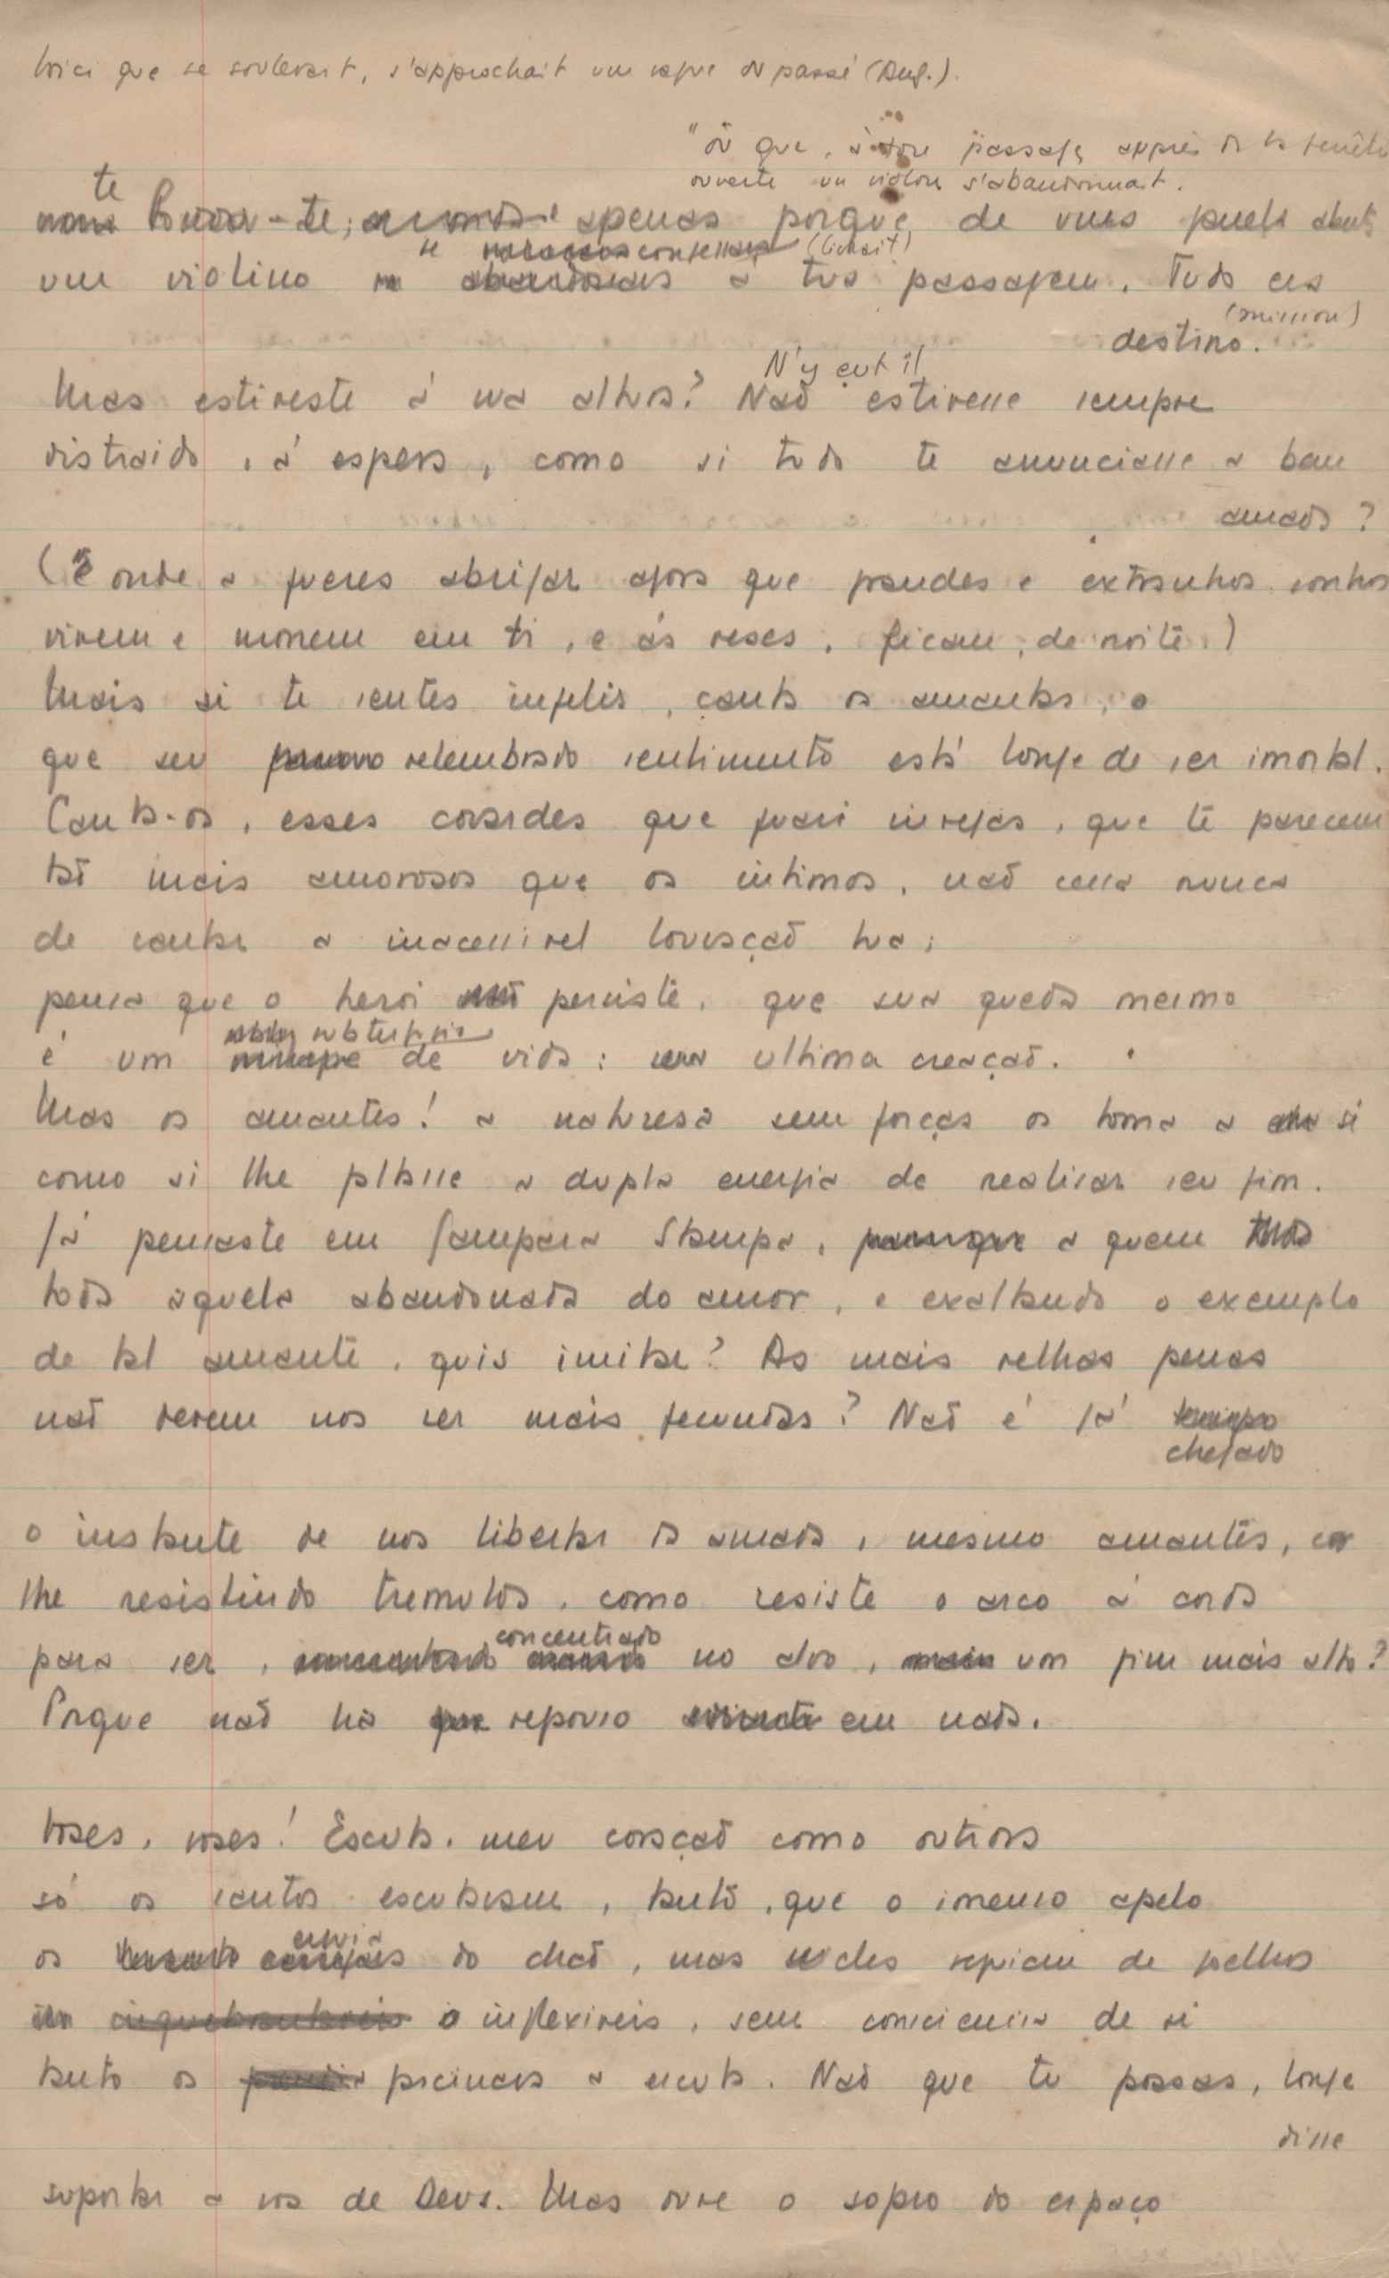 Voici que se soulevait, s'approchait une vague du passé (Ang.).
"où que, à ton passage, auprès de la fenêtre
ouverte un violon s'abandonnait.
te
apenas porque, de uma janela aberta
se confessara (livrait)
um violino a tua passagem. Tudo era
(mission)
destino.
N'y eut il
Mas estiveste á sua altura? Não estivesse sempre
distraido, á espera, como si tudo te anunciasse a bem
amada?
(E onde a queres abrigar agora que grandes e extranhos sonhos
vivem e morrem em ti, e ás veses, ficam, de noite.)
Mais si te sentes infelis, canta os amantes, o
que seu relembrado sentimento está longe de ser imortal.
Canta-os, esses covardes que quasi invejas, que te parecem
tão mais amorosos que os intimos, não cessa nunca
de cantar a inacessivel louvação tua;
pensa que o heroi persiste, que sua queda mesmo
subterfugio
é um de vida: sua ultima creação.
Mas os amantes! a naturesa sem forças os toma a si
como si lhe faltasse a dupla energia de realisar seu fim.
Já pensaste em Gampara Stampa, a quem
toda aquela abandonada do amor, e exaltando o exemplo
de tal amante, quis imitar? As mais velhas penas
não devem nos ser mais fecundas? Não é já tempo
chegado
o instante de nos libertar da amada, mesmo amantes,
lhe resistindo tremulos, como resiste o arco á corda
concentrado
para ser, no alvo, um fim mais alto?
Porque não há repouso em nada.
Voses, voses! Escuta, meu coração como outrora
só os santos escutaram, tanto, que o imenso apelo
ervia
os do chão, mas eles seguiam de joelhos
inflexiveis, sem consciencia de si
tanto os procurara a escuta. Não que tu possas, longe
disse
suportar a vos de Deus. Mas ouve o sopro do espaço